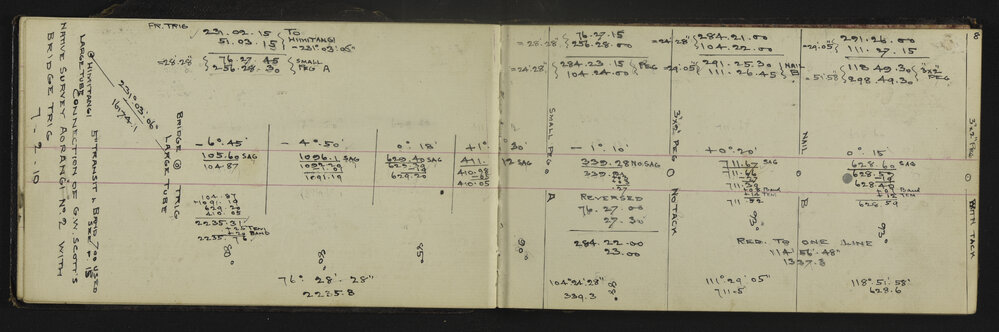 NATIVE SURVEY AORANGI No 2 WITH
BRIDGE TRIG 7-2-10
CONNECTION OF G.W. SCOTT'S
5" TRANSIT & BAND 700 USED
LARGE TUBE
@ HIMITANGI
231°.03'.06"
16174.1
FR. TRIG
231.02.15
51.03.15
TO
HIMITANGI
=231°.03'.05"
=28.28"
76.27.45
256.28.30
SMALL
PEG A
BRIDGE TRIG
@
LARGE TUBE
-6°.45'
-4°.50'
0°.18'
+1°.30'
105.60 SAG
104.87
1096.1 SAG
1091.19
629.40 SAG
629.20
411.12 SAG
410.08
410.05
104.87
1091.19
629.20
410.05
2235.31
+.25 TEM
+.20 BAND
2235.76
80°
80°
85°
90°
76°.28'.28"
2235.8
=28.28"
76.27.15
256.28.00
=24'.28"
284.21.00
104.22.00
=24'.28"
284.23.15
104.24.00
PEG
=29'.05"
291.26.00
111.27.15
=29'.05"
291.25.30
111.26.45
NAIL
B
=51'.58"
118.49.30
298.49.30
3"x2"
PEG
80
SMALL PEG
A
-1°.10'
339.28 NO SAG
REVERSED
76.27.00
27.30
284.22.00
23.00
104°.24'.28"
339.3
88°
3"x2" PEG
NO TACK
+0°.20'
711.67 SAG
711.52
93°
NAIL
B
RED. TO ONE LINE
114°.56'.48"
1337.3
111°.29'.05"
711.5
0°.15'
628.60 SAG
628.59
93°
3"x2" PEG
WITH TACK
118°.51'.58"
628.6